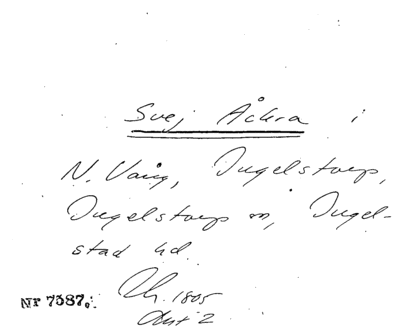 Svej Åkra i
N. Vång, Ingelstorp,
Ingelstorp sn, Ingel-
stad hd.
Lh. 1805
Akt 2
Nr 7387.